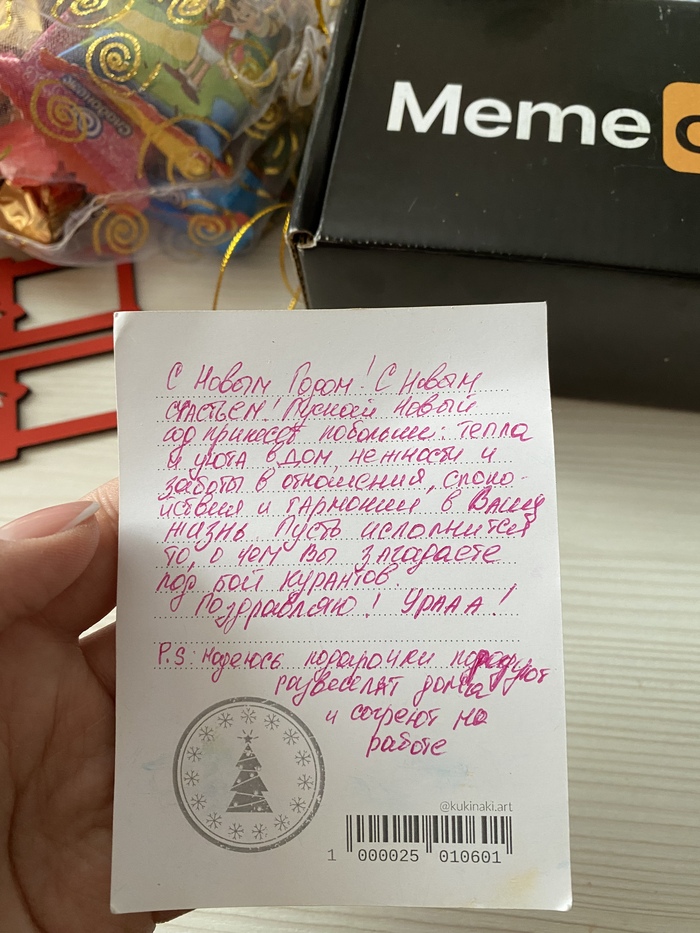 Meme
С Новым Годом! С Новым
счастьем! Пускай Новый
год принесёт побольше: тепла
и уюта в дом, нежности и
заботы в отношения, споко-
йствия и гармонии в Вашу
жизнь. Пусть исполнится
то, о чём Вы загадаете
под бой курантов.
Поздравляю! Урааа!
P.S: надеюсь подарочки порадуют
развеселят дома
и согреют на
работе
@kukinaki.art
1 000025 010601